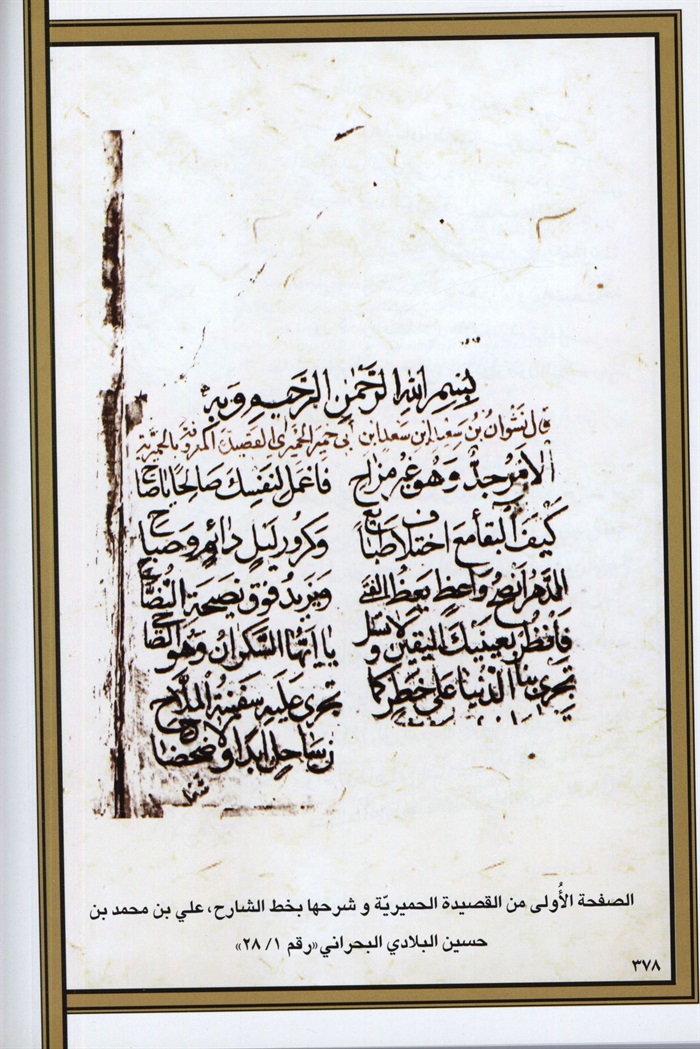 بِسْمِ اللهِ الرَّحْمٰنِ الرَّحِيمِ وَبِهِ
قال نشوان بن سعيد ابن سعد ابن أبي حمير الحميري القصيدة المعروفة بالحميرية
الأمْرُ جِدٌّ وَهُوَ غَيْرُ مزَاحِ فَاعْمَل لِنَفْسِكَ صَالِحًا يَا صَاحِ
كَيْفَ البَقَاءُ مَعَ اختِلافِ طَبَائِعٍ وَكُرُورِ لَيْلٍ دَائِمٍ وَصَبَاحِ
الدَّهرُ أَنْصَحُ وَاعِظٍ يَعِظُ الفَتَى وَيَزِيدُ فَوْقَ نَصِيحَةِ النُّصَّاحِ
فَانْظُرْ بِعَيْنَيْكَ اليَقِينَ وَلَا تَسَل يَا أَيُّهَا السَّكْرَانُ وَهُوَ الصَّاحِي
تَجْرِي بِنَا الدُّنْيَا عَلَى خَطَرٍ كَمَا تَجْرِي عَلَيْهِ سَفِينَةُ المَلَّاحِ
سَاحِل أَبَدًا وَلَا ضَحْضَاحِ
الصفحة الأُولى من القصيدة الحميريّة و شرحها بخط الشارح، علي بن محمد بن
حسين البلادي البحراني «رقم ١/ ٢٨»
٣٧٨